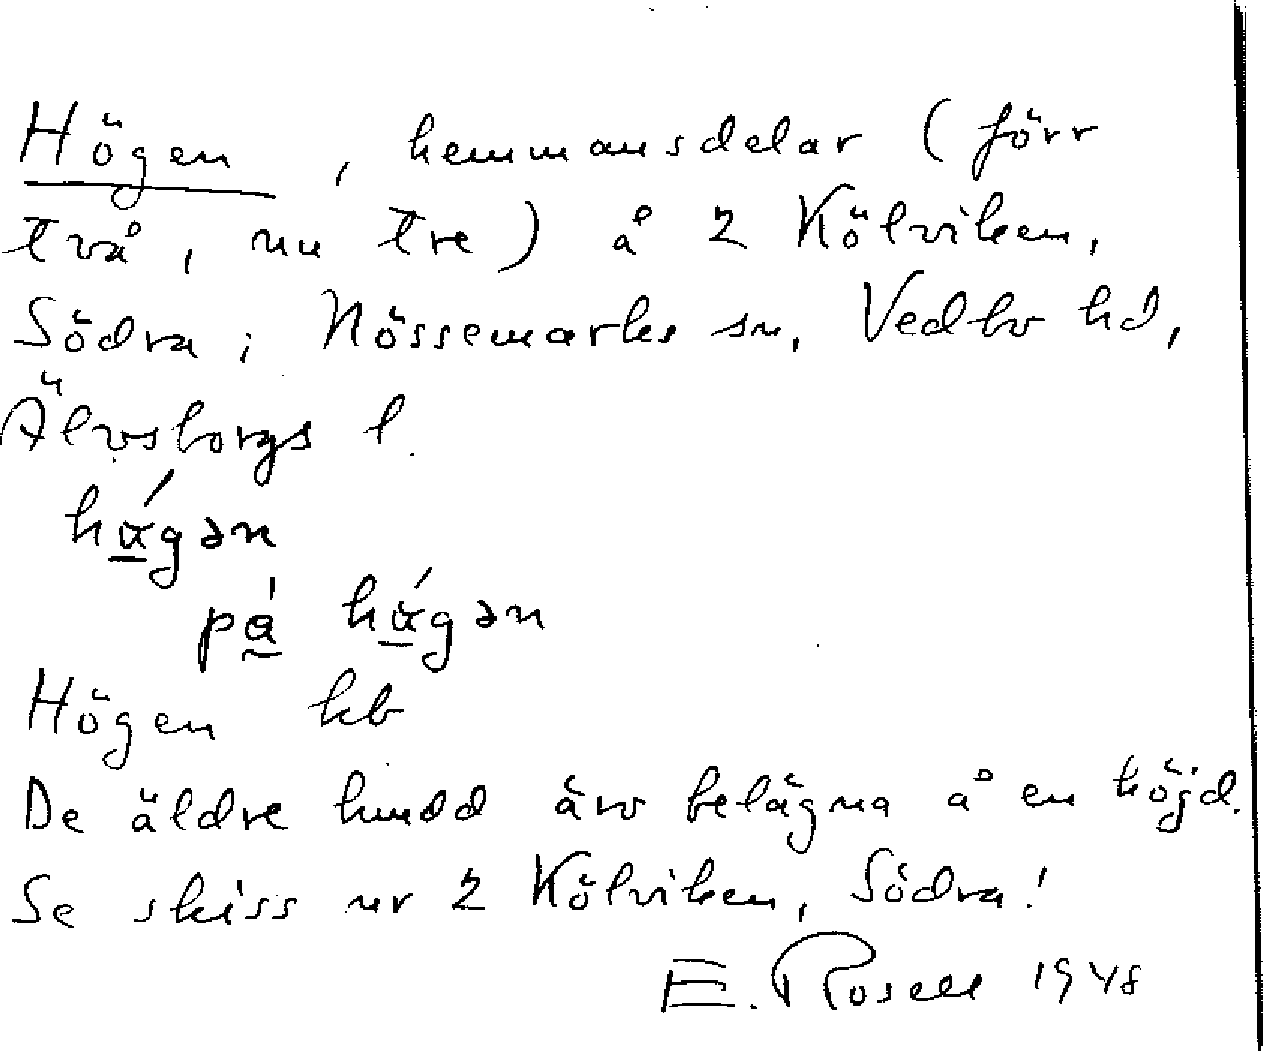 Högen, hemmansdelar (förr
två, nu tre) å 2 Kölviken,
Södra; Nössemarks sn, Vedbo hd,
Älvsborgs l.
hǿgən
på hǿgən
Högen kb
De äldre hmdd äro belägna å en höjd.
Se skiss nr 2 Kölviken, Södra!
E. Rosell 1948